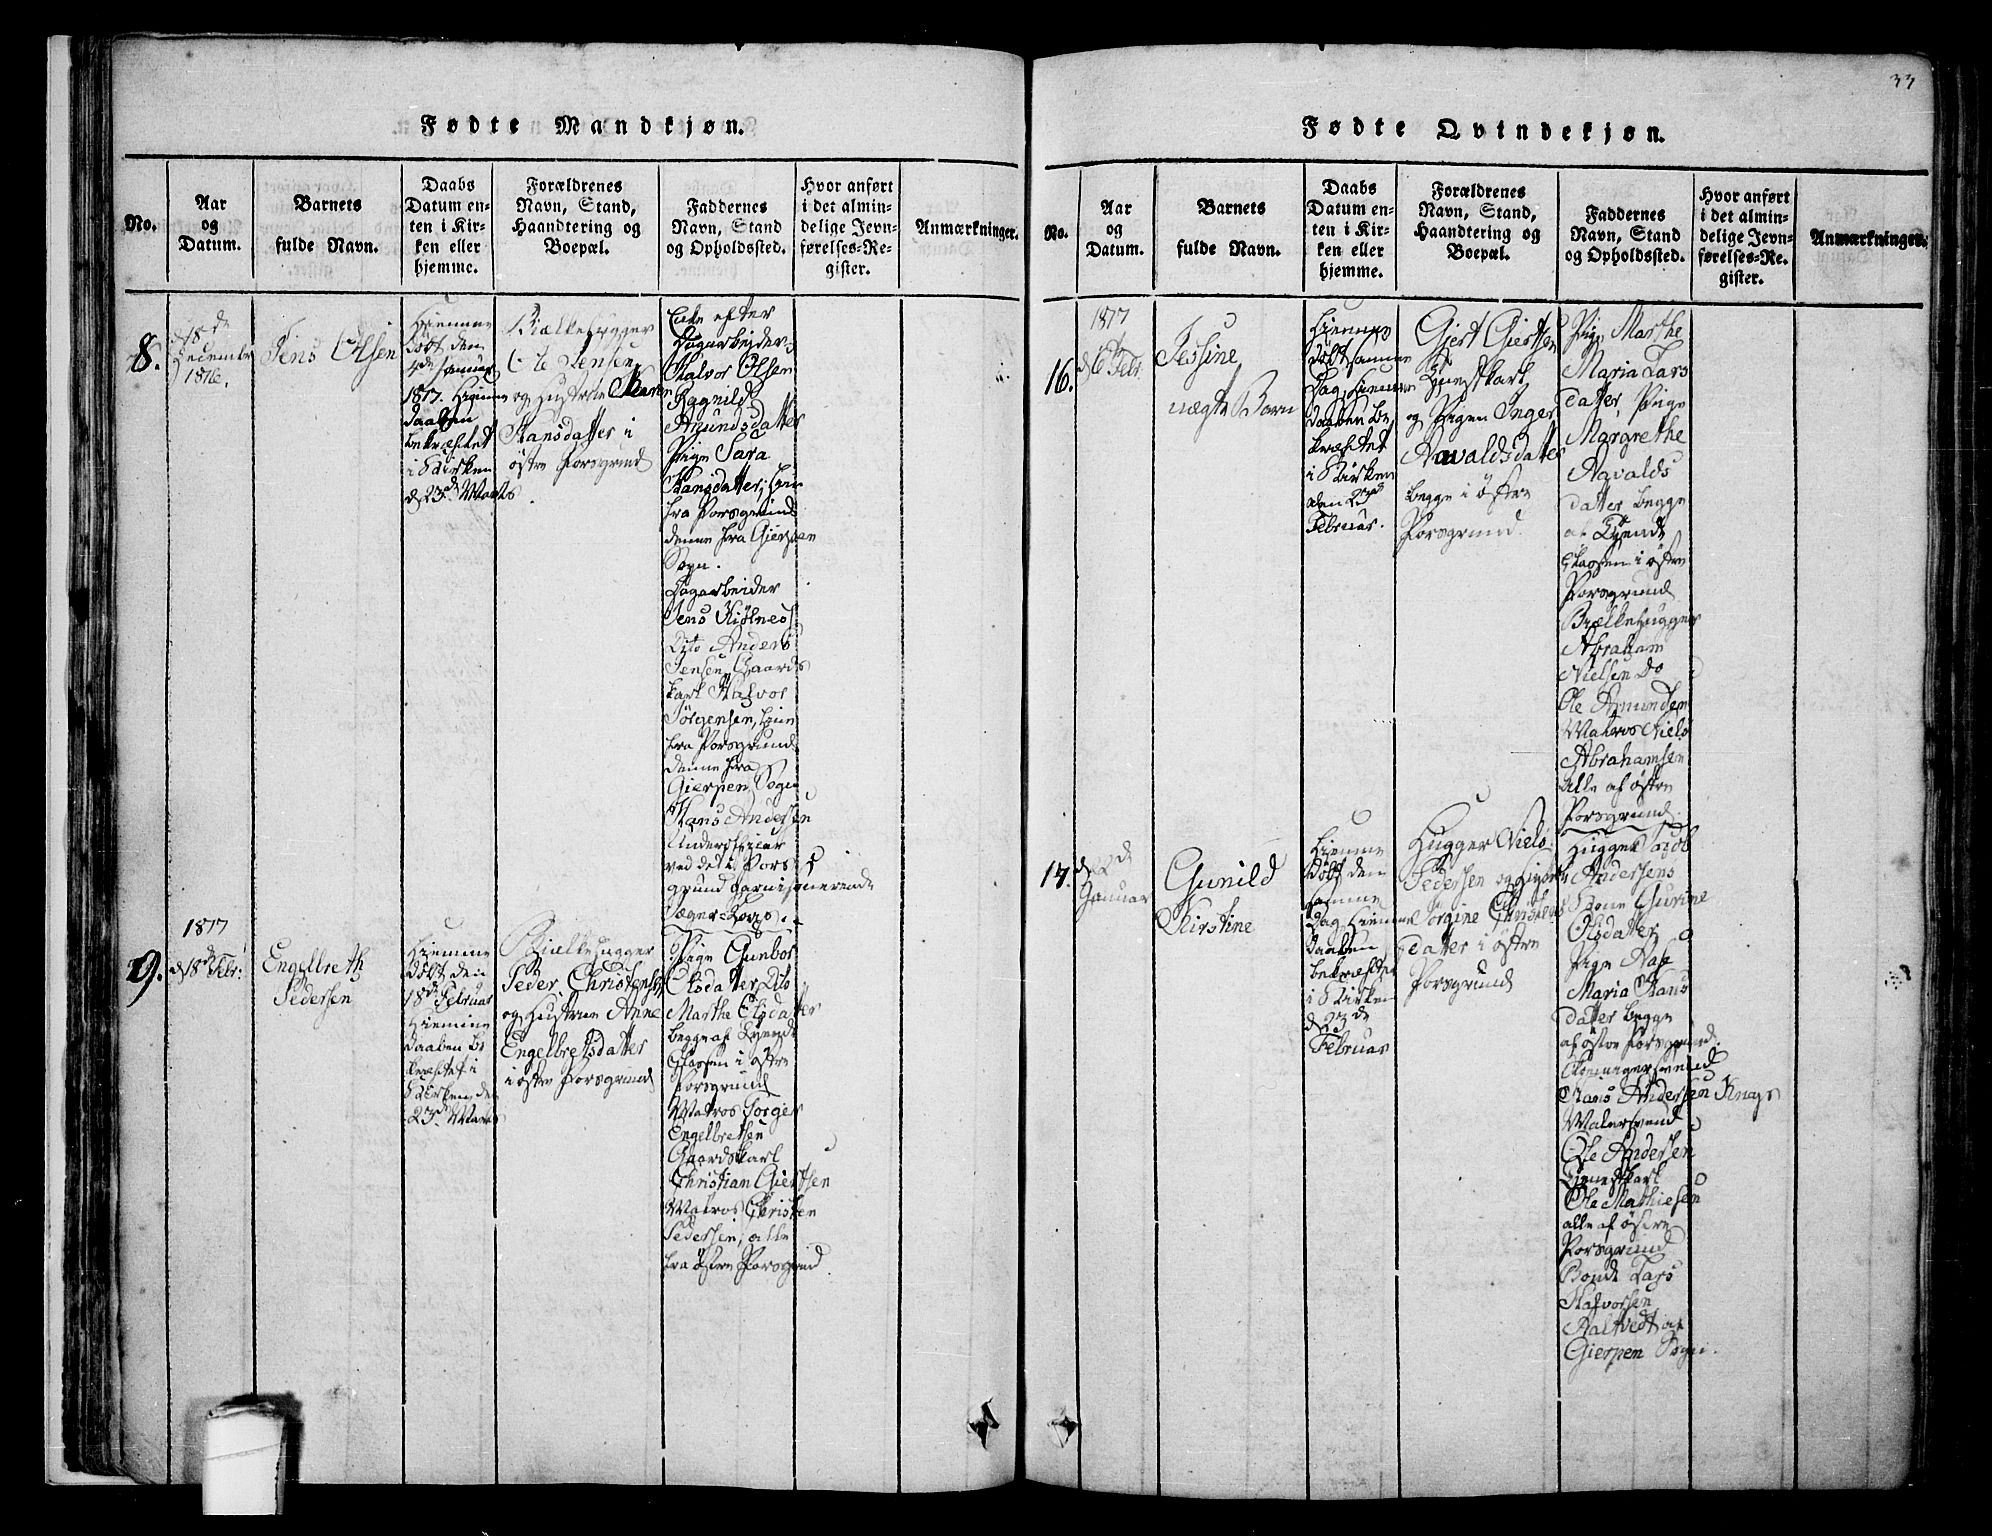 33
Fødte Mandkjøn.
No.
Aar
og
Datum.
Barnets
fulde Navn.
Daabs
Datum en-
ten i Kir-
ken eller
hjemme.
Forældrenes
Navn, Stand,
Haandtering og
Boepæl.
Faddernes
Navn, Stand
og Opholdssted.
Hvor anført
i det almin-
delige Jevn-
førelses-Re-
gister.
Anmærkninger.
8.
18de
December
1816.
Jens Olsen
Hiemme
døbt den
4de Januar
1817. Hiemme
daaben
bekræftet
i Kirken
d. 23de Marts
Biælkehugger
Ole Jensen
og Hustrue Maren
Hansdatter i
østre Porsgrund
Enke efter
Dagarbeider
Halvor Olsen
Ragnild
Amundsdatter
Pige Sara
Hansdatter,
fra Porsgrund
denne fra Gierpen
Sogn.
Dagarbeider
Jens Kiølnes
Dito Anders
Jensen, Gaards
karl Halvor
Jørgensen,
fra Porsgrund
denne fra
Gierpen Sogn
Hans Andersen
Underofficier
ved det i Pors
grund garnisonerende
Jæger-Korps.
9.
1817
d. 18de Febr:
Engelbreth
Pedersen
Hiemme
døbt den
18de Februar
Hiemme
daaben be
kræftet i
Kirken den
23de Marts
Biælkehugger
Peder Christensen
og Hustrue Anne
Engelbretsdatter
i østre Porsgrund
Pige Gunbor
Olsdatter, Dito
Marthe Elsdatter
begge af Tyende
Classen i østre
Porsgrund
Matros Torger
Engelbretsen
Gaardskarl
Christian Giertsen
Matros Christen
Pedersen, alle
fra østre Porsgrund
Fødte Qvindekjøn.
No.
Aar
og
Datum.
Barnets
fulde Navn.
Daabs
Datum en-
ten i Kir-
ken eller
hjemme.
Forældrenes
Navn, Stand,
Haandtering og
Boepæl.
Faddernes
Navn, Stand
og Opholdssted.
Hvor anført
i det almin-
delige Jevn-
førelses-Re-
gister.
Anmærkninger.
16.
1817
d. 6 Febr.
Jessine
uægte Barn
Hiemme
døbt samme
Dag, Hiemme
daaben be
kræftet
i Kirken
den 23de
Februar.
Gjert Giertsen
Tienestkarl
og Pigen Inger
Aavaldsdatter
begge i østre
Porsgrund.
Pige Marthe
Maria Lars
datter, Pige
Margrethe
Aavalds
datter begge
af Tyende
Classen i østre
Porsgrund
Biælkehugger
Abraham
Nielsen do
Ole Amundsen
Matros Niels
Abrahamsen
Alle af østre
Porsgrund.
17.
d. 22de
Januar
Gunild
Kirstine
Hiemme
døbt den
samme
Dag, Hiemme
daaben
bekræftet
i Kirken
d. 23de
Februar
Hugger Niels
Pedersen og
Jørgine Christens
datter i østre
Porsgrund
Hugger Jacob
Andersens
Kone Gurine
Olsdatter
Pige
Maria Hans
datter begge
af østre Porsgrund.
Hans Andersen Knap
Malersvend
Ole Andersen
Tienestkarl
Ole Mathiesen
alle af østre
Porsgrund
Bonde Lars
Halvorsen
Aaltvedt af
Gierpen Sogn.